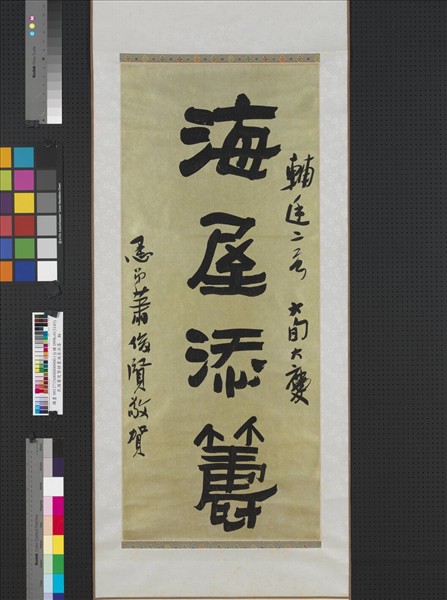 輔廷二哥 六旬大慶
海屋添籌
愚弟蕭俊賢敬賀